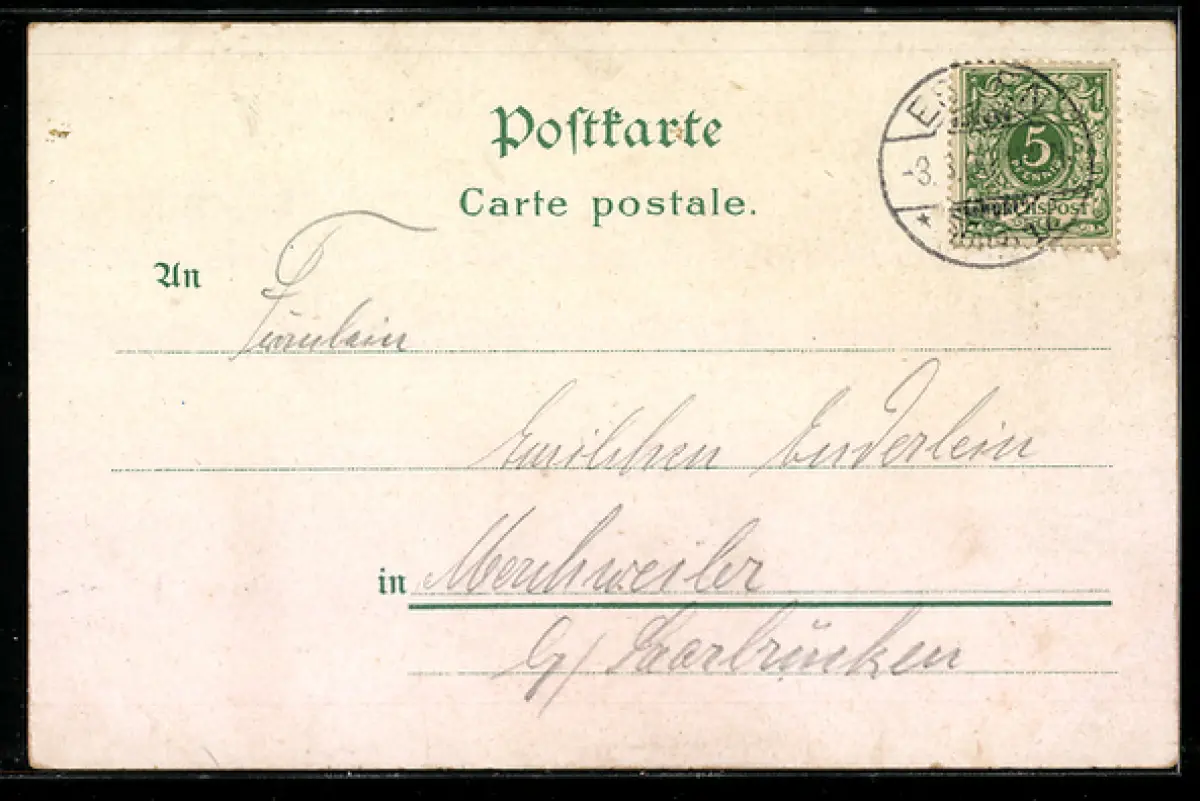 Postkarte
Carte postale.
5
PFENNIG
REICHSPOST
An
Fräulein
Emilchen Enderlein
in Merchweiler
b/ Saarbrücken